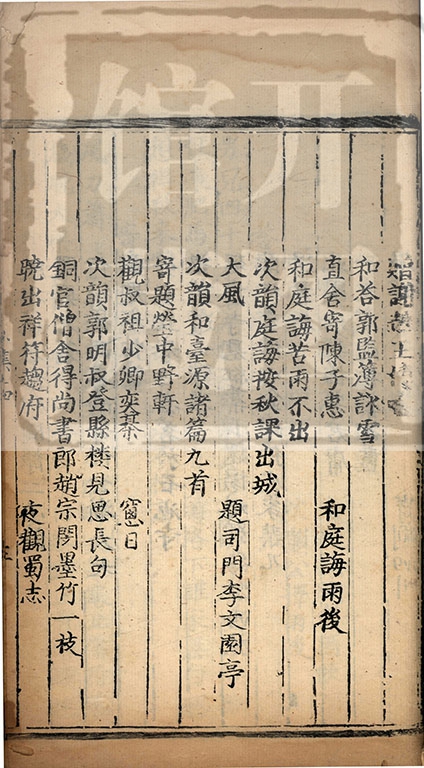 和答郭監簿詠雪
直舍寄陳子惠 和庭誨雨後
和庭誨苦雨不出
次韻庭誨按秋課出城
大風 題司門李文園亭
次韻和臺源諸篇九首
寄題瑩中野軒
觀叔祖少卿奕棊 窻日
次韻郭明叔登縣樓見思長句
銅官僧舍得尚書郎趙宗閔墨竹一枝
曉出祥符趨府 夜觀蜀志